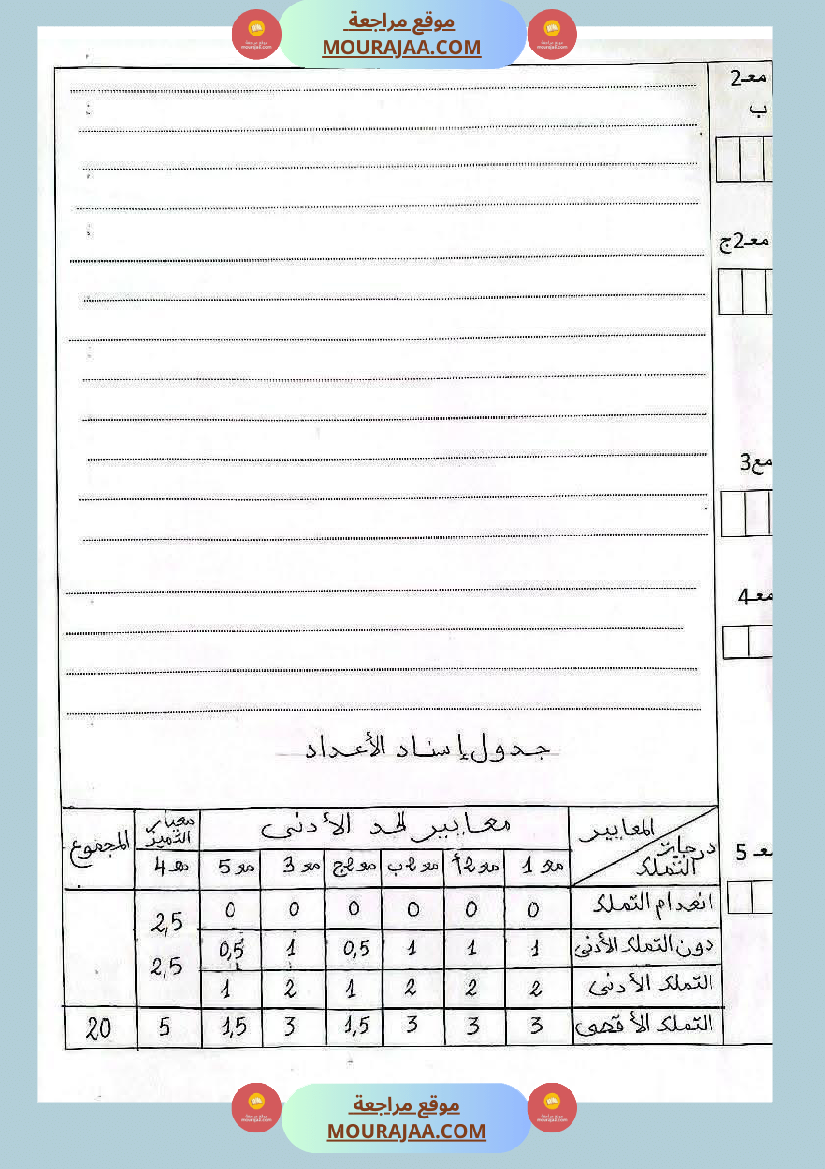 موقع مراجعة
MOURAJAA.COM
معـ2
ب
معـ2ج
مع3
معـ4
جدول إسناد الأعداد
المعايير
درجات التملك
معايير الحد الأدنى
معيار التميز
المجموع
مع 1
مع 2أ
مع 2ب
مع 2ج
مع 3
مع 5
مع 4
معـ 5
انعدام التملك 0 0 0 0 0 0 2,5
دون التملك الأدنى 1 1 1 0,5 1 0,5 2,5
التملك الأدنى 2 2 2 1 2 1
التملك الأقصى 3 3 3 1,5 3 1,5 5 20
موقع مراجعة
MOURAJAA.COM